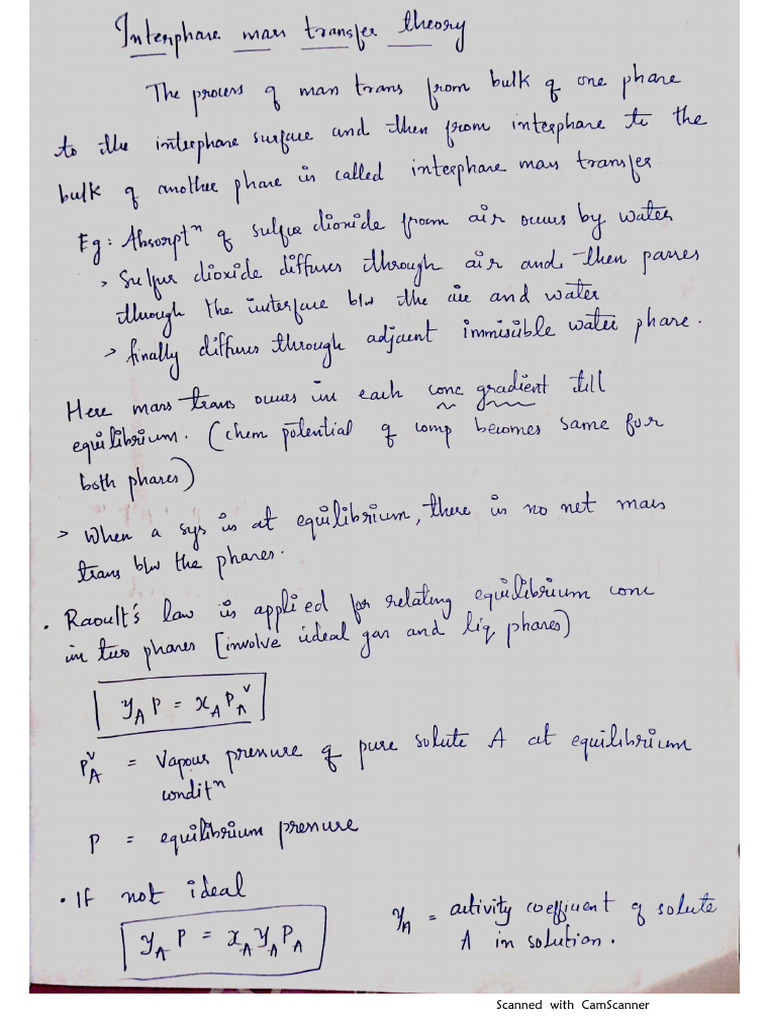 Interphase mass transfer theory
The process of mass trans from bulk of one phase
to the interphase surface and then from interphase to the
bulk of another phase is called interphase mass transfer
Eg: Absorptⁿ of sulfur dioxide from air occurs by water
> Sulfur dioxide diffuses through air and then passes
through the interface b/w the air and water
> finally diffuses through adjacent immisible water phase.
Here mass trans occurs in each conc gradient till
equilibrium. (chem potential of comp becomes same for
both phases)
> When a sys is at equilibrium, there is no net mass
trans b/w the phases.
• Raoult's law is applied for relating equilibrium conc
in two phases [involve ideal gas and liq phases)
y_A P = x_A P_A^v
P_A^v = Vapour pressure of pure solute A at equilibrium
conditⁿ
P = equilibrium pressure
• If not ideal
y_A P = x_A γ_A P_A
γ_A = activity coefficient of solute
A in solution.
Scanned with CamScanner